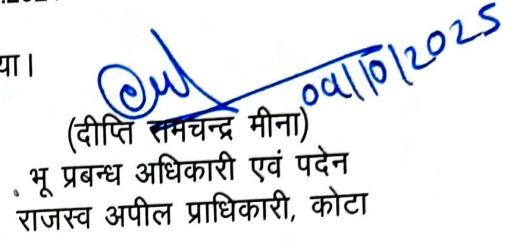 या।
09/10/2025
(दीप्ति रामचन्द्र मीना)
भू प्रबन्ध अधिकारी एवं पदेन
राजस्व अपील प्राधिकारी, कोटा